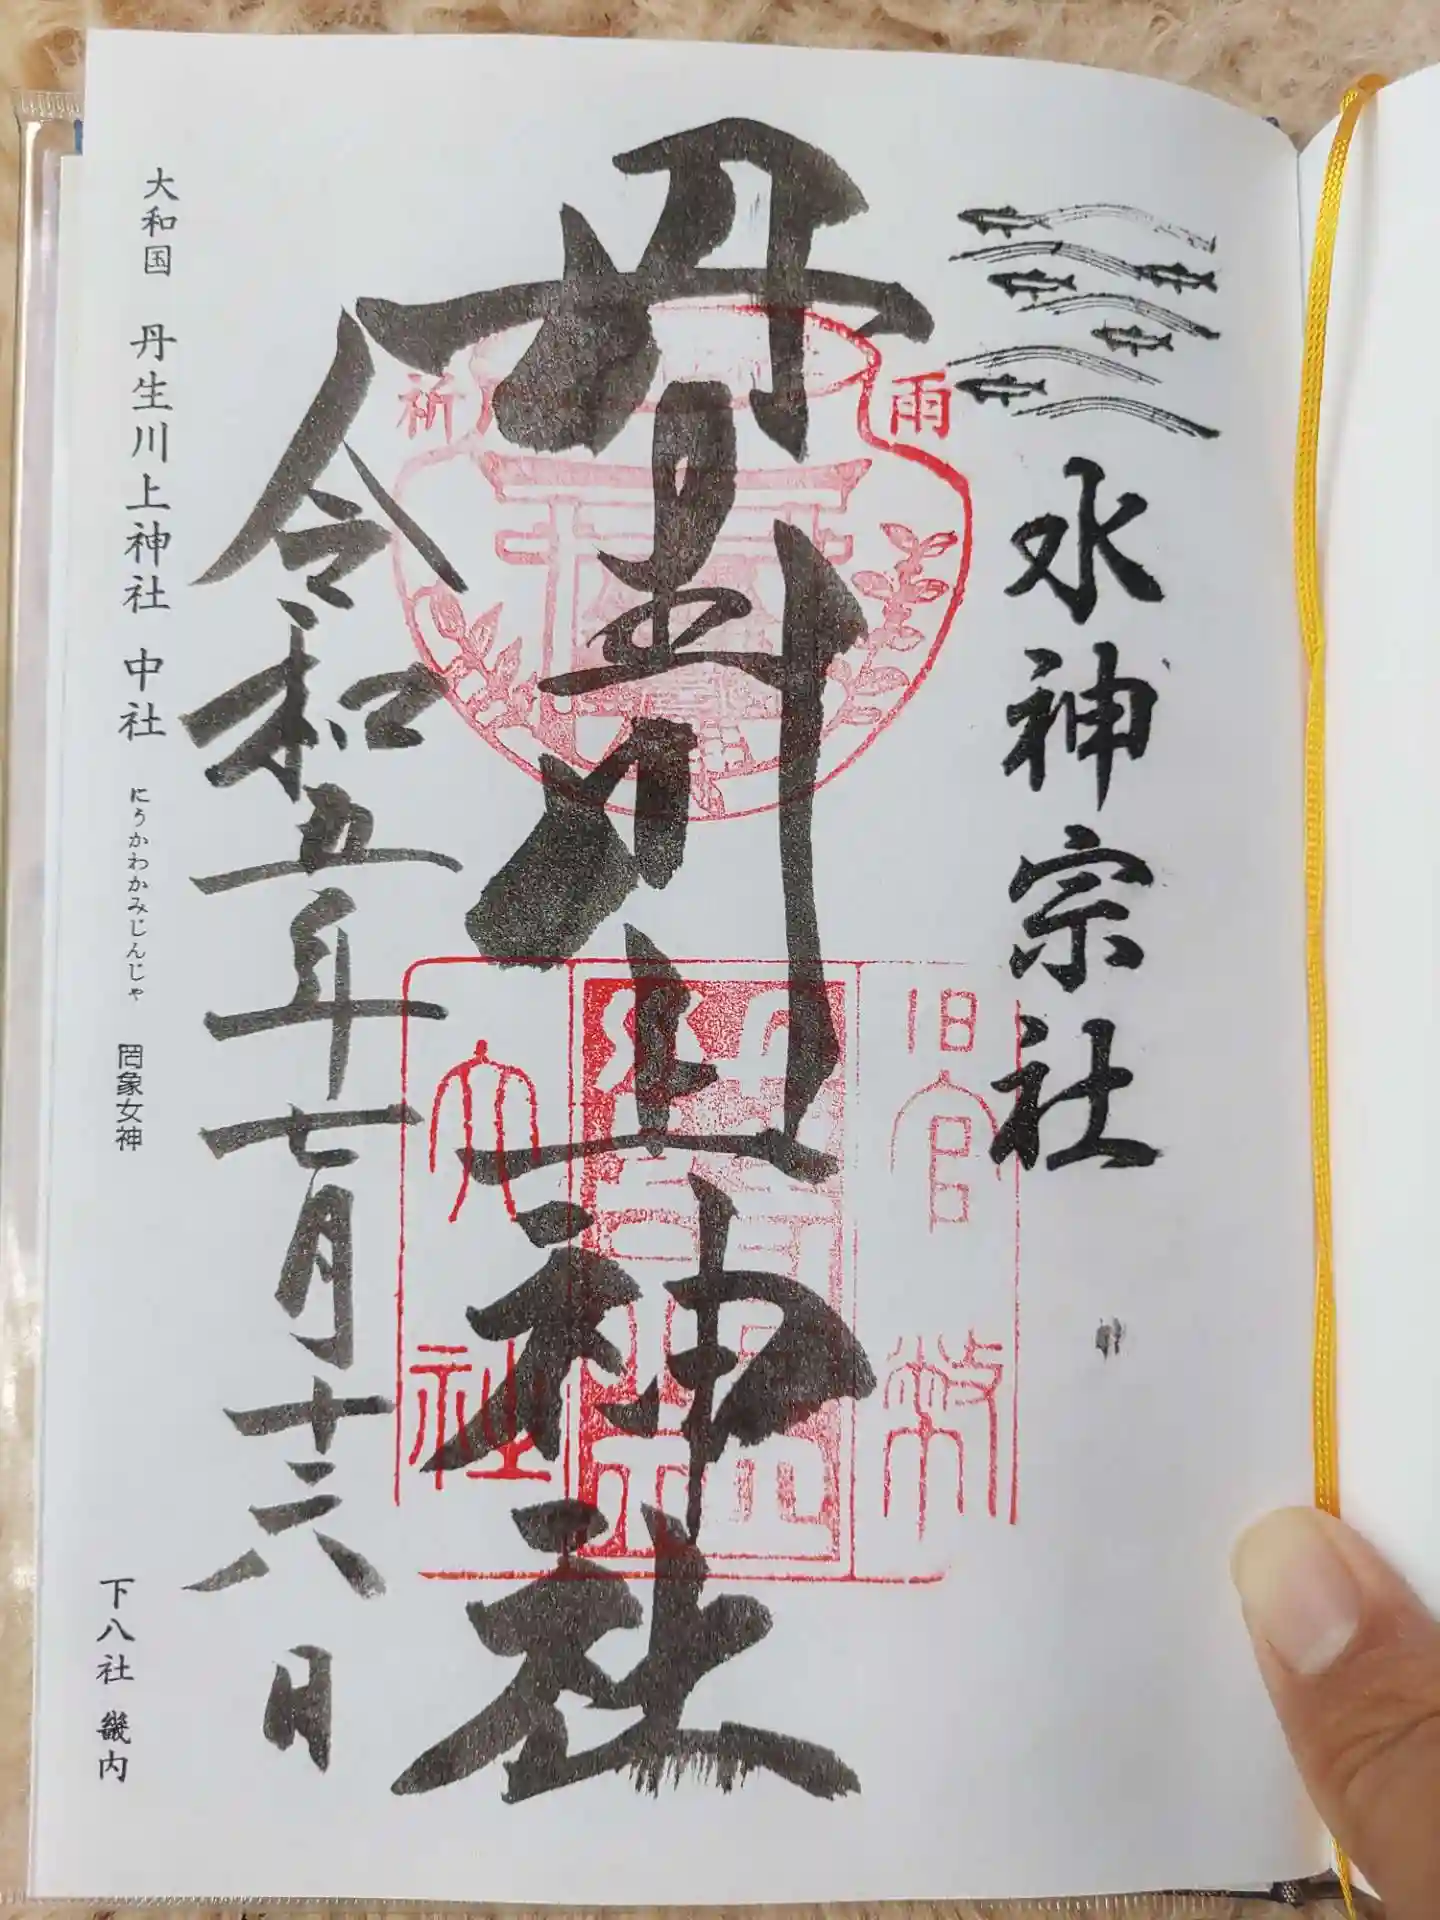 水神宗社
雨
祈
丹生川上神社
旧官幣
大社
令和五年七月十六日
大和国 丹生川上神社 中社 にうかわかみじんじゃ 罔象女神 下八社 畿内